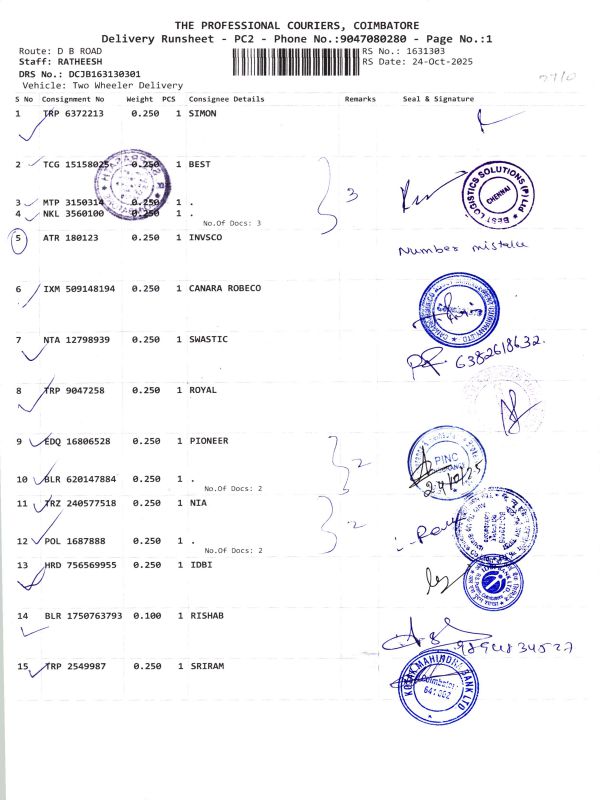 THE PROFESSIONAL COURIERS, COIMBATORE
Delivery Runsheet - PC2 - Phone No.:9047080280 - Page No.:1
Route: D B ROAD RS No.: 1631303
Staff: RATHEESH RS Date: 24-Oct-2025
DRS No.: DCJB163130301
Vehicle: Two Wheeler Delivery
S No Consignment No Weight PCS Consignee Details Remarks Seal & Signature
1 TRP 6372213 0.250 1 SIMON
2 TCG 15158025 0.250 1 BEST
3
BEST LOGISTICS SOLUTIONS (P) Ltd
CHENNAI
3 MTP 3150314 0.250 1 .
4 NKL 3560100 0.250 1 .
No.Of Docs: 3
5 ATR 180123 0.250 1 INVSCO
Number mistake
6 IXM 509148194 0.250 1 CANARA ROBECO
7 NTA 12798939 0.250 1 SWASTIC
6382618632.
8 TRP 9047258 0.250 1 ROYAL
9 EDQ 16806528 0.250 1 PIONEER
2
PINC
24/10/25
10 BLR 620147884 0.250 1 .
No.Of Docs: 2
11 TRZ 240577518 0.250 1 NIA
2
12 POL 1687888 0.250 1 .
No.Of Docs: 2
13 HRD 756569955 0.250 1 IDBI
14 BLR 1750763793 0.100 1 RISHAB
15 TRP 2549987 0.250 1 SRIRAM
KOTAK MAHINDRA BANK LTD
Coimbatore
641 002